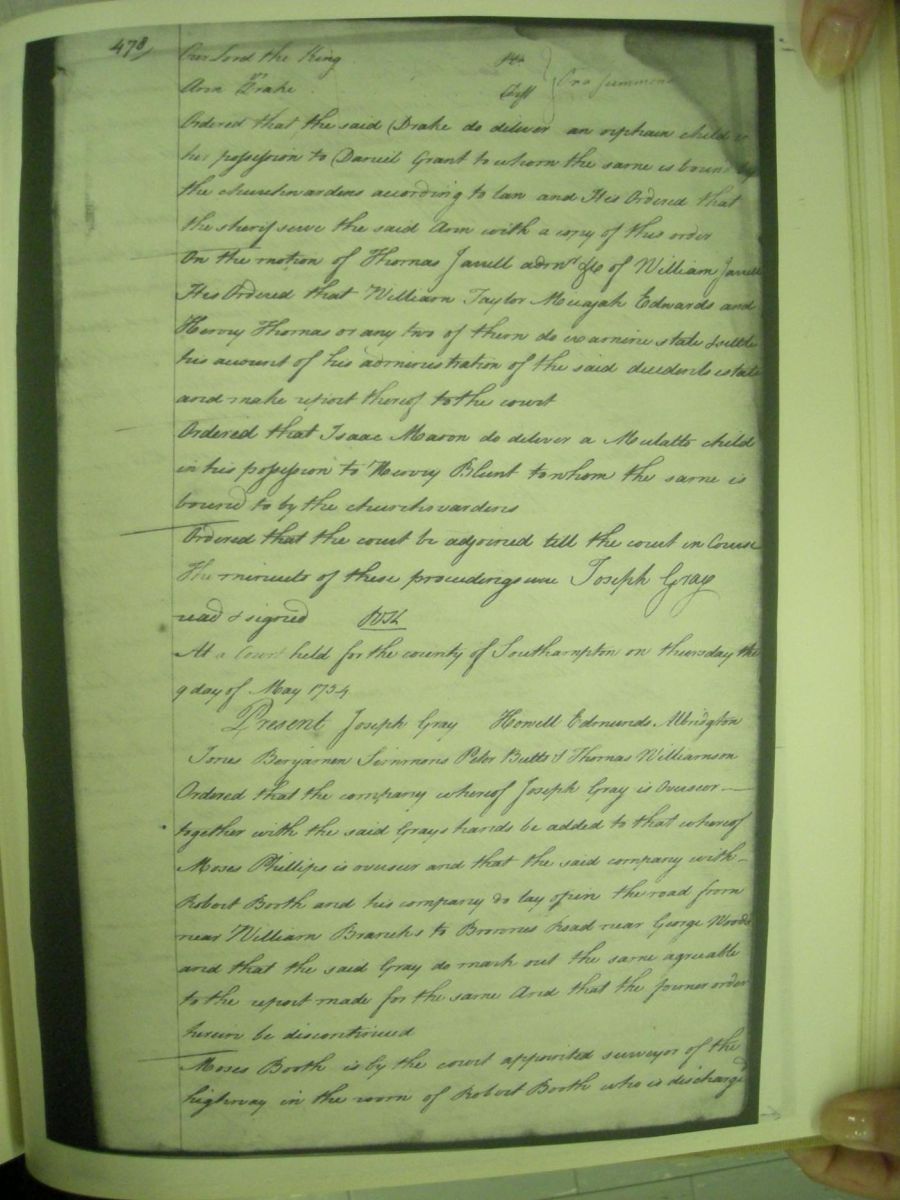 478
Our Lord the King Plt
vs On a Summons
Ann Drake Deft
Ordered that the said Drake do deliver an orphain child in
her possession to Daniel Grant to whom the same is bound by
the churchwardens according to law and Itis Ordered that
the sherif serve the said Ann with a copy of this order
On the motion of Thomas Jarrell admr &c of William Jarrell
Itis Ordered that William Taylor Micajah Edwards and
Henry Thomas or any two of them do examine state & settle
his account of his administration of the said decedents estate
and make report thereof to the court
Ordered that Isaac Mason do deliver a Mulatto child
in his possession to Henry Blunt to whom the same is
bound to by the churchwardens
Ordered that the court be adjorned till the court in Course
The minuets of these proceedings were Joseph Gray
read & signed
At a Court held for the county of Southampton on thursday the
9 day of May 1754
Present Joseph Gray Howell Edmunds Albridgton
Jones Benjamen Simmons Peter Butts & Thomas Williamson
Ordered that the company whereof Joseph Gray is Overseer
together with the said Grays hands be added to that whereof
Moses Phillips is overseer and that the said company with
Robert Booth and his company do lay open the road from
near William Branchs to Brownes Road near George Woods
and that the said Gray do mark out the same agreeable
to the report made for the same And that the former order
herein be discontinued
Moses Booth is by the court appointed surveyor of the
highway in the room of Robert Booth who is discharged